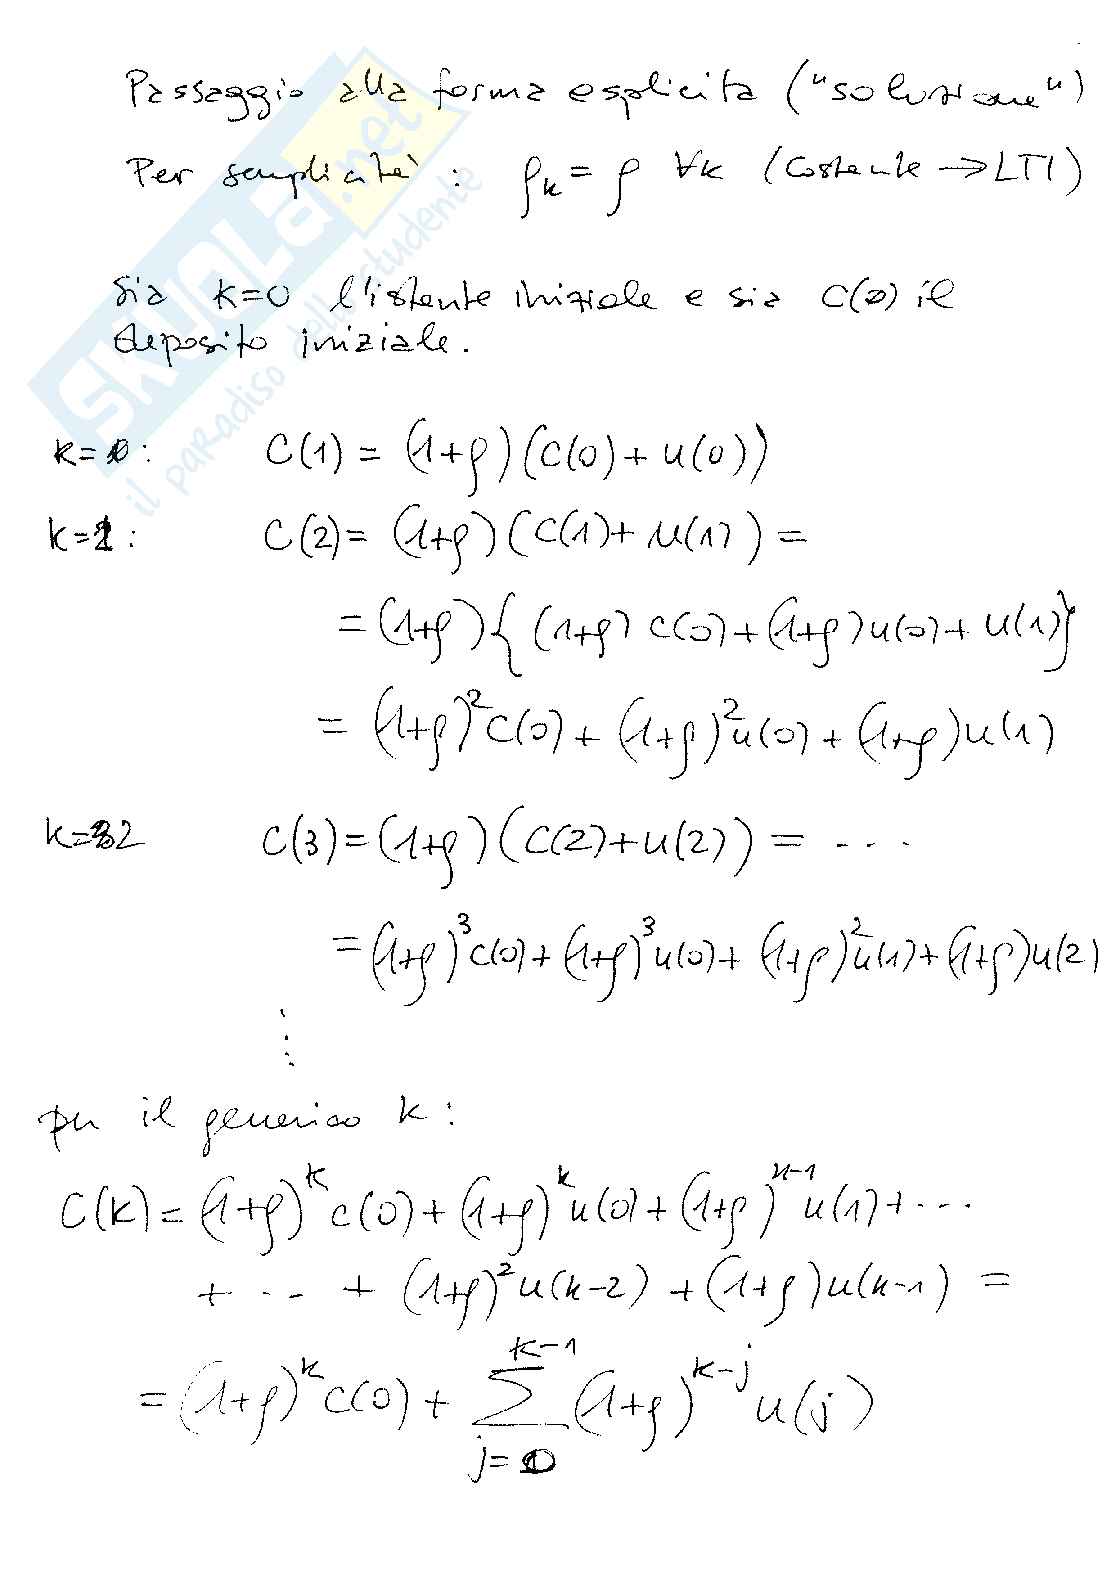 Passaggio alla forma esplicita ("soluzione")
Per semplicità : ρₖ = ρ ∀k (costante → LTI)
Sia k=0 l'istante iniziale e sia C(0) il
deposito iniziale.
k=0: C(1) = (1+ρ)(C(0)+u(0))
k=1: C(2)= (1+ρ)(C(1)+u(1)) =
=(1+ρ){(1+ρ)C(0)+(1+ρ)u(0)+u(1)}
= (1+ρ)²C(0)+(1+ρ)²u(0)+(1+ρ)u(1)
k=2 C(3)=(1+ρ)(C(2)+u(2)) = ...
=(1+ρ)³C(0)+(1+ρ)³u(0)+(1+ρ)²u(1)+(1+ρ)u(2)
⋮
per il generico k:
C(k)=(1+ρ)^k C(0)+(1+ρ)^k u(0)+(1+ρ)^(k-1) u(1)+...
+ ... + (1+ρ)²u(k-2) +(1+ρ)u(k-1) =
=(1+ρ)^k C(0)+ ∑_{j=0}^{k-1} (1+ρ)^(k-j) u(j)
SKUOLA.net
il paradiso dello studente